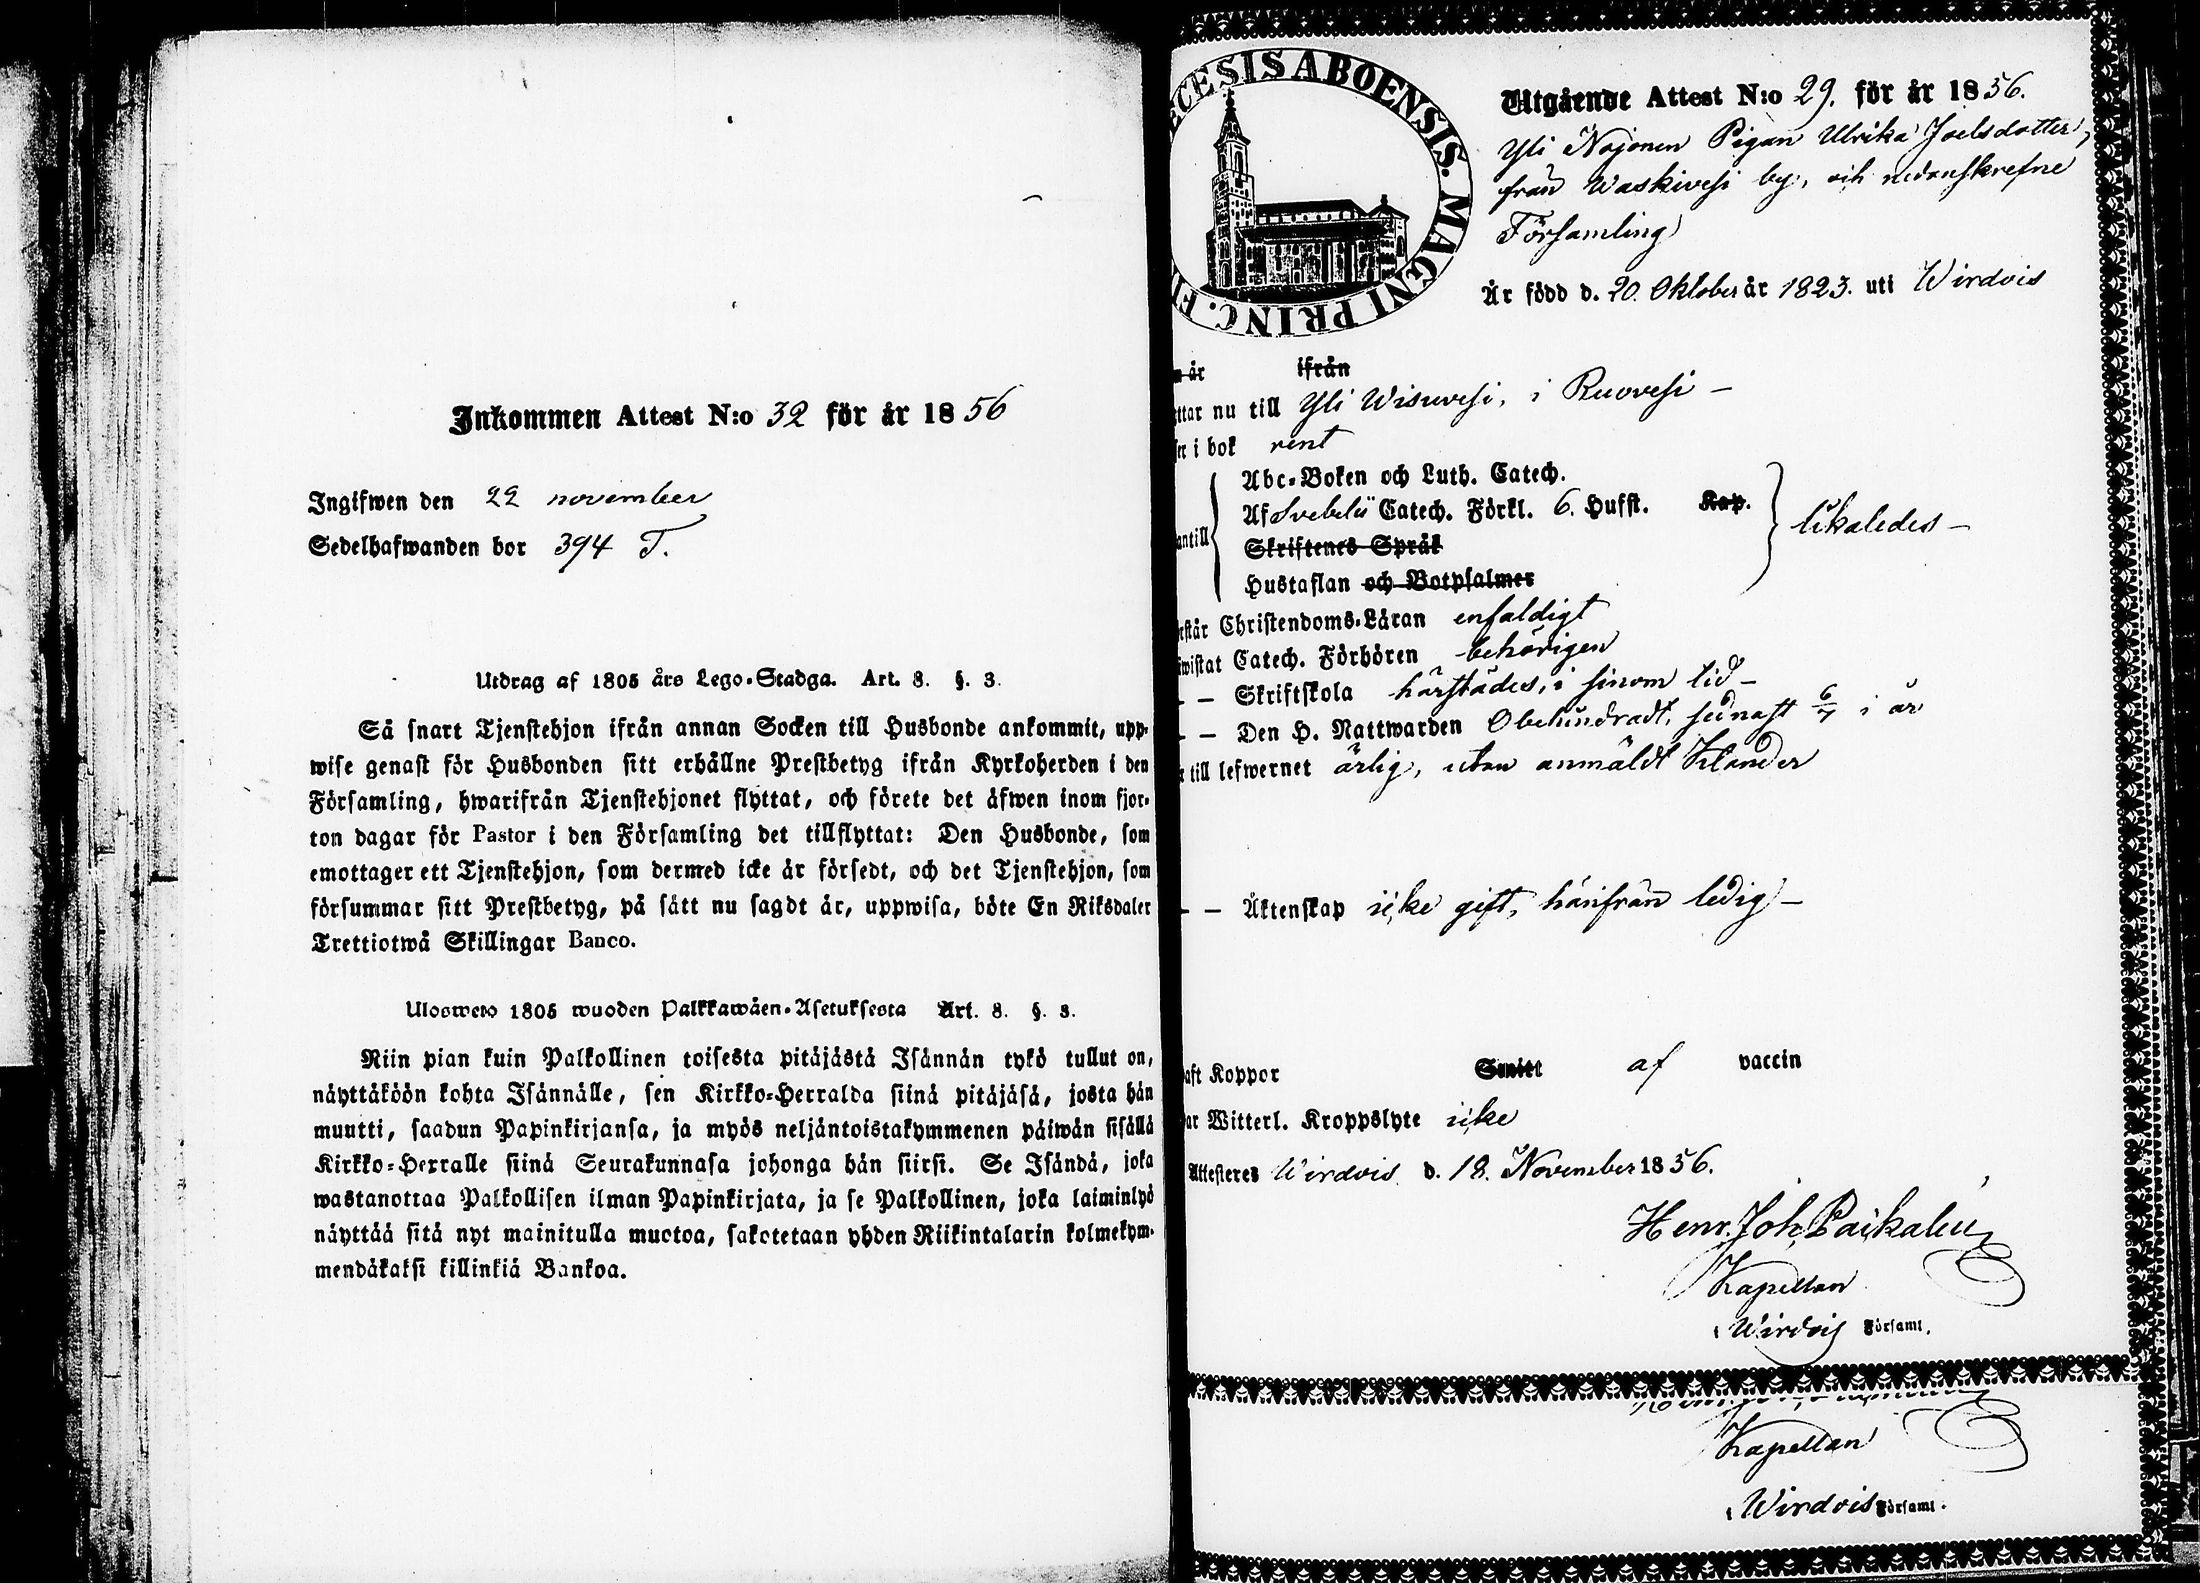 Inkommen Attest N:o 32 för år 1856
Ingifwen den 22 november
Sedelhafwanden bor 394 T.
Utdrag af 1805 års Lego-Stadga. Art. 8. §. 3.
Så snart Tjenstehjon ifrån annan Socken till Husbonde ankommit, upp-
wise genast för Husbonden sitt erhållne Prestbetyg ifrån Kyrkoherden i den
Församling, hwarifrån Tjenstehjonet flyttat, och förete det äfwen inom fjor-
ton dagar för Pastor i den Församling det tillflyttat: Den Husbonde, som
emottager ett Tjenstehjon, som dermed icke är försedt, och det Tjenstehjon, som
försummar sitt Prestbetyg, på sätt nu sagdt är, uppwisa, böte En Riksdaler
Trettiotwå Skillingar Banco.
Uloswето 1805 wuoden Palkkawäen-Asetuksesta Art. 8. §. 3.
Niin pian kuin Palkollinen toisesta pitäjästä Isännän tykö tullut on,
näyttäköön kohta Isännälle, sen Kirkko-Herralda siinä pitäjäsä, josta hän
muutti, saadun Papinkirjansa, ja myös neljäntoistakymmenen päiwän sisällä
Kirkko-Herralle siinä Seurakunnasa johonga hän siirsi. Se Isändä, joka
wastanottaa Palkollisen ilman Papinkirjata, ja se Palkollinen, joka laiminlyö
näyttää sitä nyt mainitulla muotoa, sakotetaan yhden Riikintalarin kolmekym-
mendäkaksi killinkiä Bankoa.
ECESIS ABOENSIS. MAGNI PRINC. FI
Utgående Attest N:o 29. för år 1856.
Yli Nojonen Pigan Ulrika Joelsdotter,
från Waskivesi by, och nedanskrefne
Församling
Är född d. 20. Oktober år 1823. uti Wirdois
är ifrån
ttar nu till Yli Wisuvesi, i Ruovesi –
er i bok rent
Abc-Boken och Luth. Catech.
Af Svebelii Catech. Förkl. 6. Hufst. Kap.
antill
likaledes –
Skriftenes Språk
Hustaflan och Botpsalmer
rstår Christendoms-Läran enfaldigt
wistat Catech. Förhören behörigen
– – Skriftskola härstädes, i sinom tid –
– – Den H. Nattwarden Obehindradt, sednast 6/7 i år
till lefwernet ärlig, utan anmäldt Klander
– – Äktenskap icke gift, härifrån ledig –
aft Koppor Smitt af vaccin
ar Witterl. Kroppslyte icke
Attesteres Wirdois d. 18. November 1856.
Henr. Joh. Paikalén
Kapellan
i Wirdois Församl.
Kapellan
i Wirdois Församl.